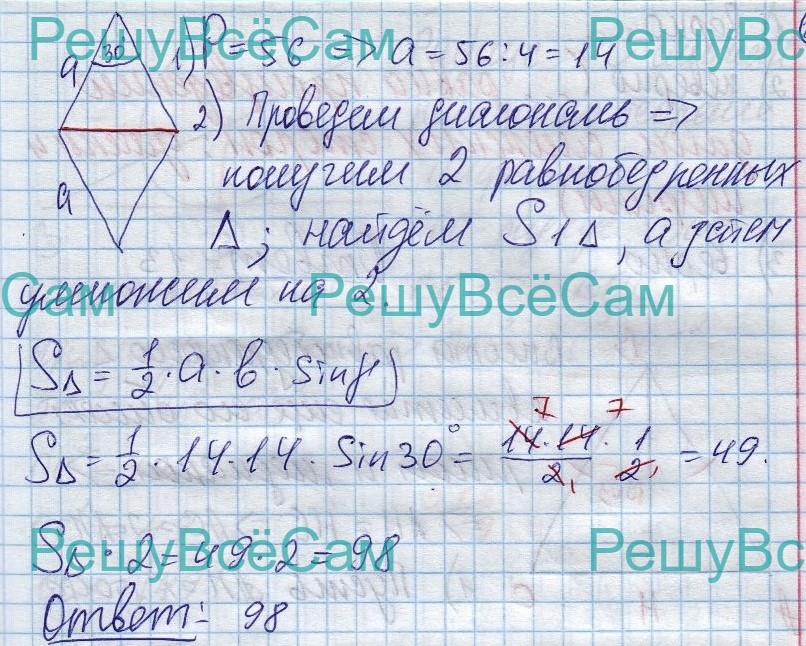 РешуВсёСам РешуВсё
a 30 1) P = 56 => a = 56 : 4 = 14
2) Проведём диагональ =>
a получим 2 равнобедренных
Δ; найдём S1Δ, а затем
умножим на 2.
Сам РешуВсёСам
SΔ = 1/2 · a · b · sin γ
7 7
SΔ = 1/2 · 14 · 14 · Sin 30° = 14 · 14 / 2 · 1/2 = 49.
1 1
РешуВсёСам РешуВсё
SΔ · 2 = 49 · 2 = 98
Ответ: 98